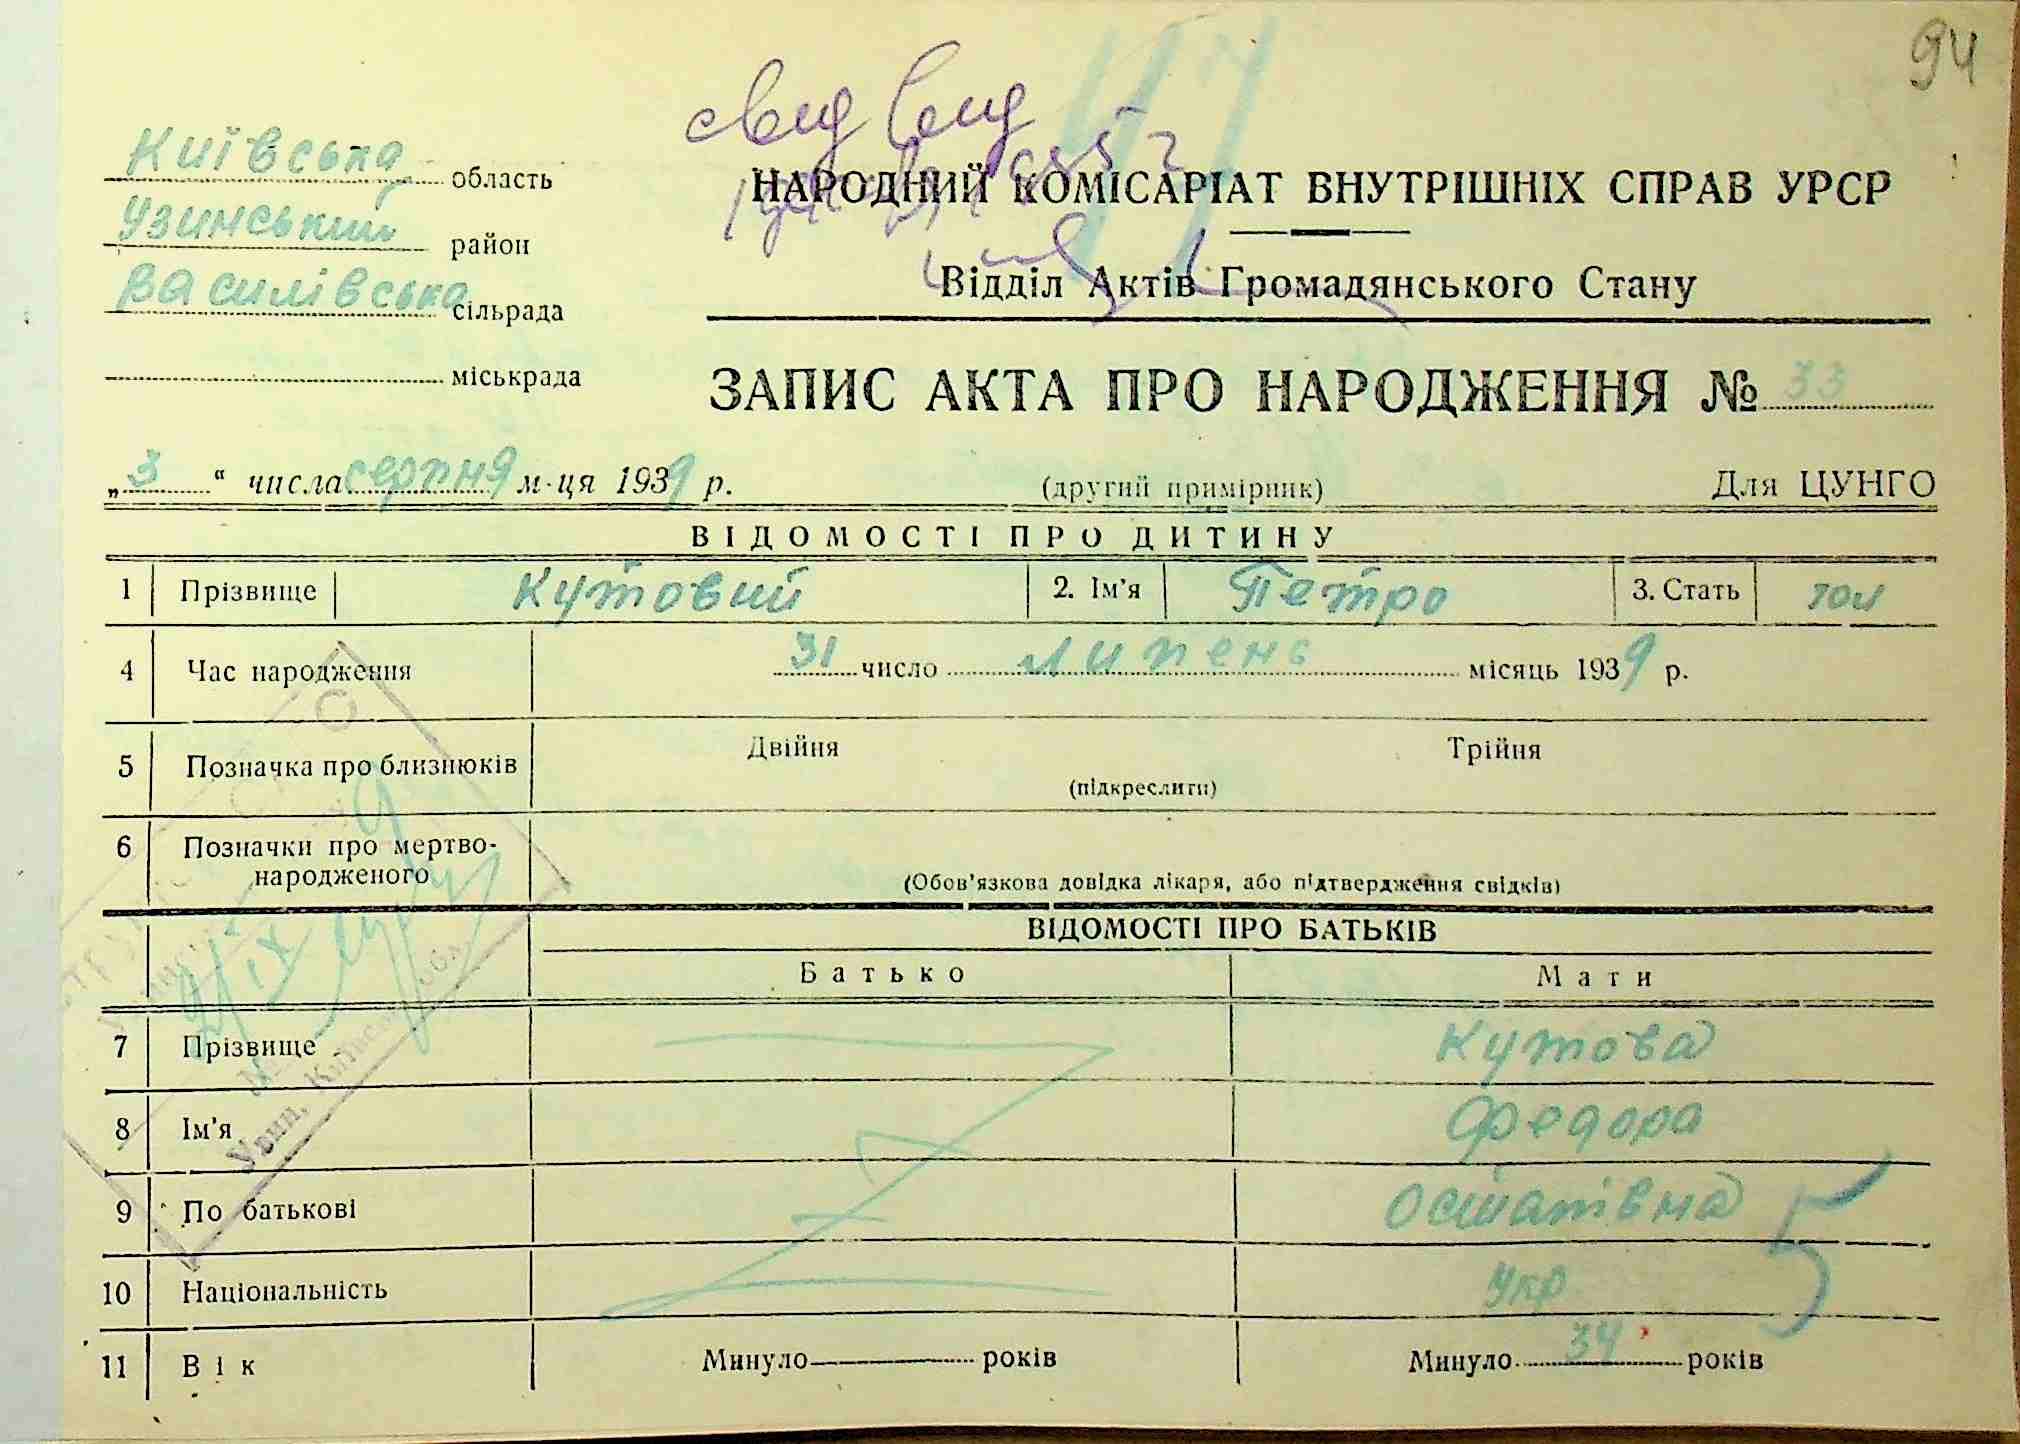 94
Київська область
Узинський район
Василівська сільрада
міськрада
НАРОДНИЙ КОМІСАРІАТ ВНУТРІШНІХ СПРАВ УРСР
Відділ Актів Громадянського Стану
ЗАПИС АКТА ПРО НАРОДЖЕННЯ № 33
„3“ числа серпня м-ця 1939 р. (другий примірник) Для ЦУНГО
ВІДОМОСТІ ПРО ДИТИНУ
1 Прізвище Кутовий 2. Ім'я Петро 3. Стать чол
4 Час народження 31 число липень місяць 1939 р.
5 Позначка про близнюків Двійня Трійня
(підкреслити)
6 Позначки про мертво-
народженого
(Обов'язкова довідка лікаря, або підтвердження свідків)
ВІДОМОСТІ ПРО БАТЬКІВ
Батько Мати
7 Прізвище Кутова
8 Ім'я Федора
9 По батькові Остапівна
10 Національність Укр
5
11 Вік Минуло років Минуло 34 років